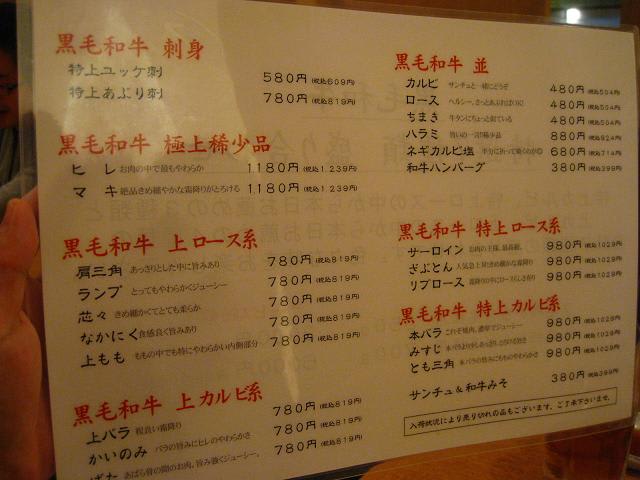 黒毛和牛 刺身
特上ユッケ刺 580円(税込609円)
特上あぶり刺 780円(税込819円)
黒毛和牛 極上稀少品
ヒレ お肉の中で最もやわらか 1,180円(税込1,239円)
マキ 絶品きめ細やかな霜降りがとろける 1,180円(税込1,239円)
黒毛和牛 上ロース系
肩三角 あっさりとした中に旨みあり 780円(税込819円)
ランプ とってもやわらかくジューシー 780円(税込819円)
芯々 きめ細かくてとても柔らか 780円(税込819円)
なかにく 食感良く旨みあり 780円(税込819円)
上もも ももの中でも特にやわらかい内側部分 780円(税込819円)
黒毛和牛 上カルビ系
上バラ 程良い霜降り 780円(税込819円)
かいのみ バラの旨みにヒレのやわらかさ 780円(税込819円)
げた あばら骨の間のお肉。旨み強くジューシー。 780円(税込819円)
黒毛和牛 並
カルビ サンチュと一緒にどうぞ 480円(税込504円)
ロース ヘルシー、さっとあぶればOK! 480円(税込504円)
ちまき 牛タンにちょっと似ている 480円(税込504円)
ハラミ 旨いの一言!極上品 880円(税込924円)
ネギカルビ塩 半分に折って焼くのが◎ 680円(税込714円)
和牛ハンバーグ 380円(税込399円)
黒毛和牛 特上ロース系
サーロイン お肉の王様。最高級。 980円(税込1029円)
ざぶとん 人気急上昇!きめ細かな霜降り 980円(税込1029円)
リブロース 霜降りの中にロースらしさ有り 980円(税込1029円)
黒毛和牛 特上カルビ系
本バラ これぞ焼肉。濃厚でジューシー 980円(税込1029円)
みすじ 980円(税込1029円)
とも三角 本バラの旨みにもものやわらかさ 980円(税込1029円)
サンチュ&和牛みそ 380円(税込399円)
入荷状況により売り切れの品もございます。ご了承下さいませ。